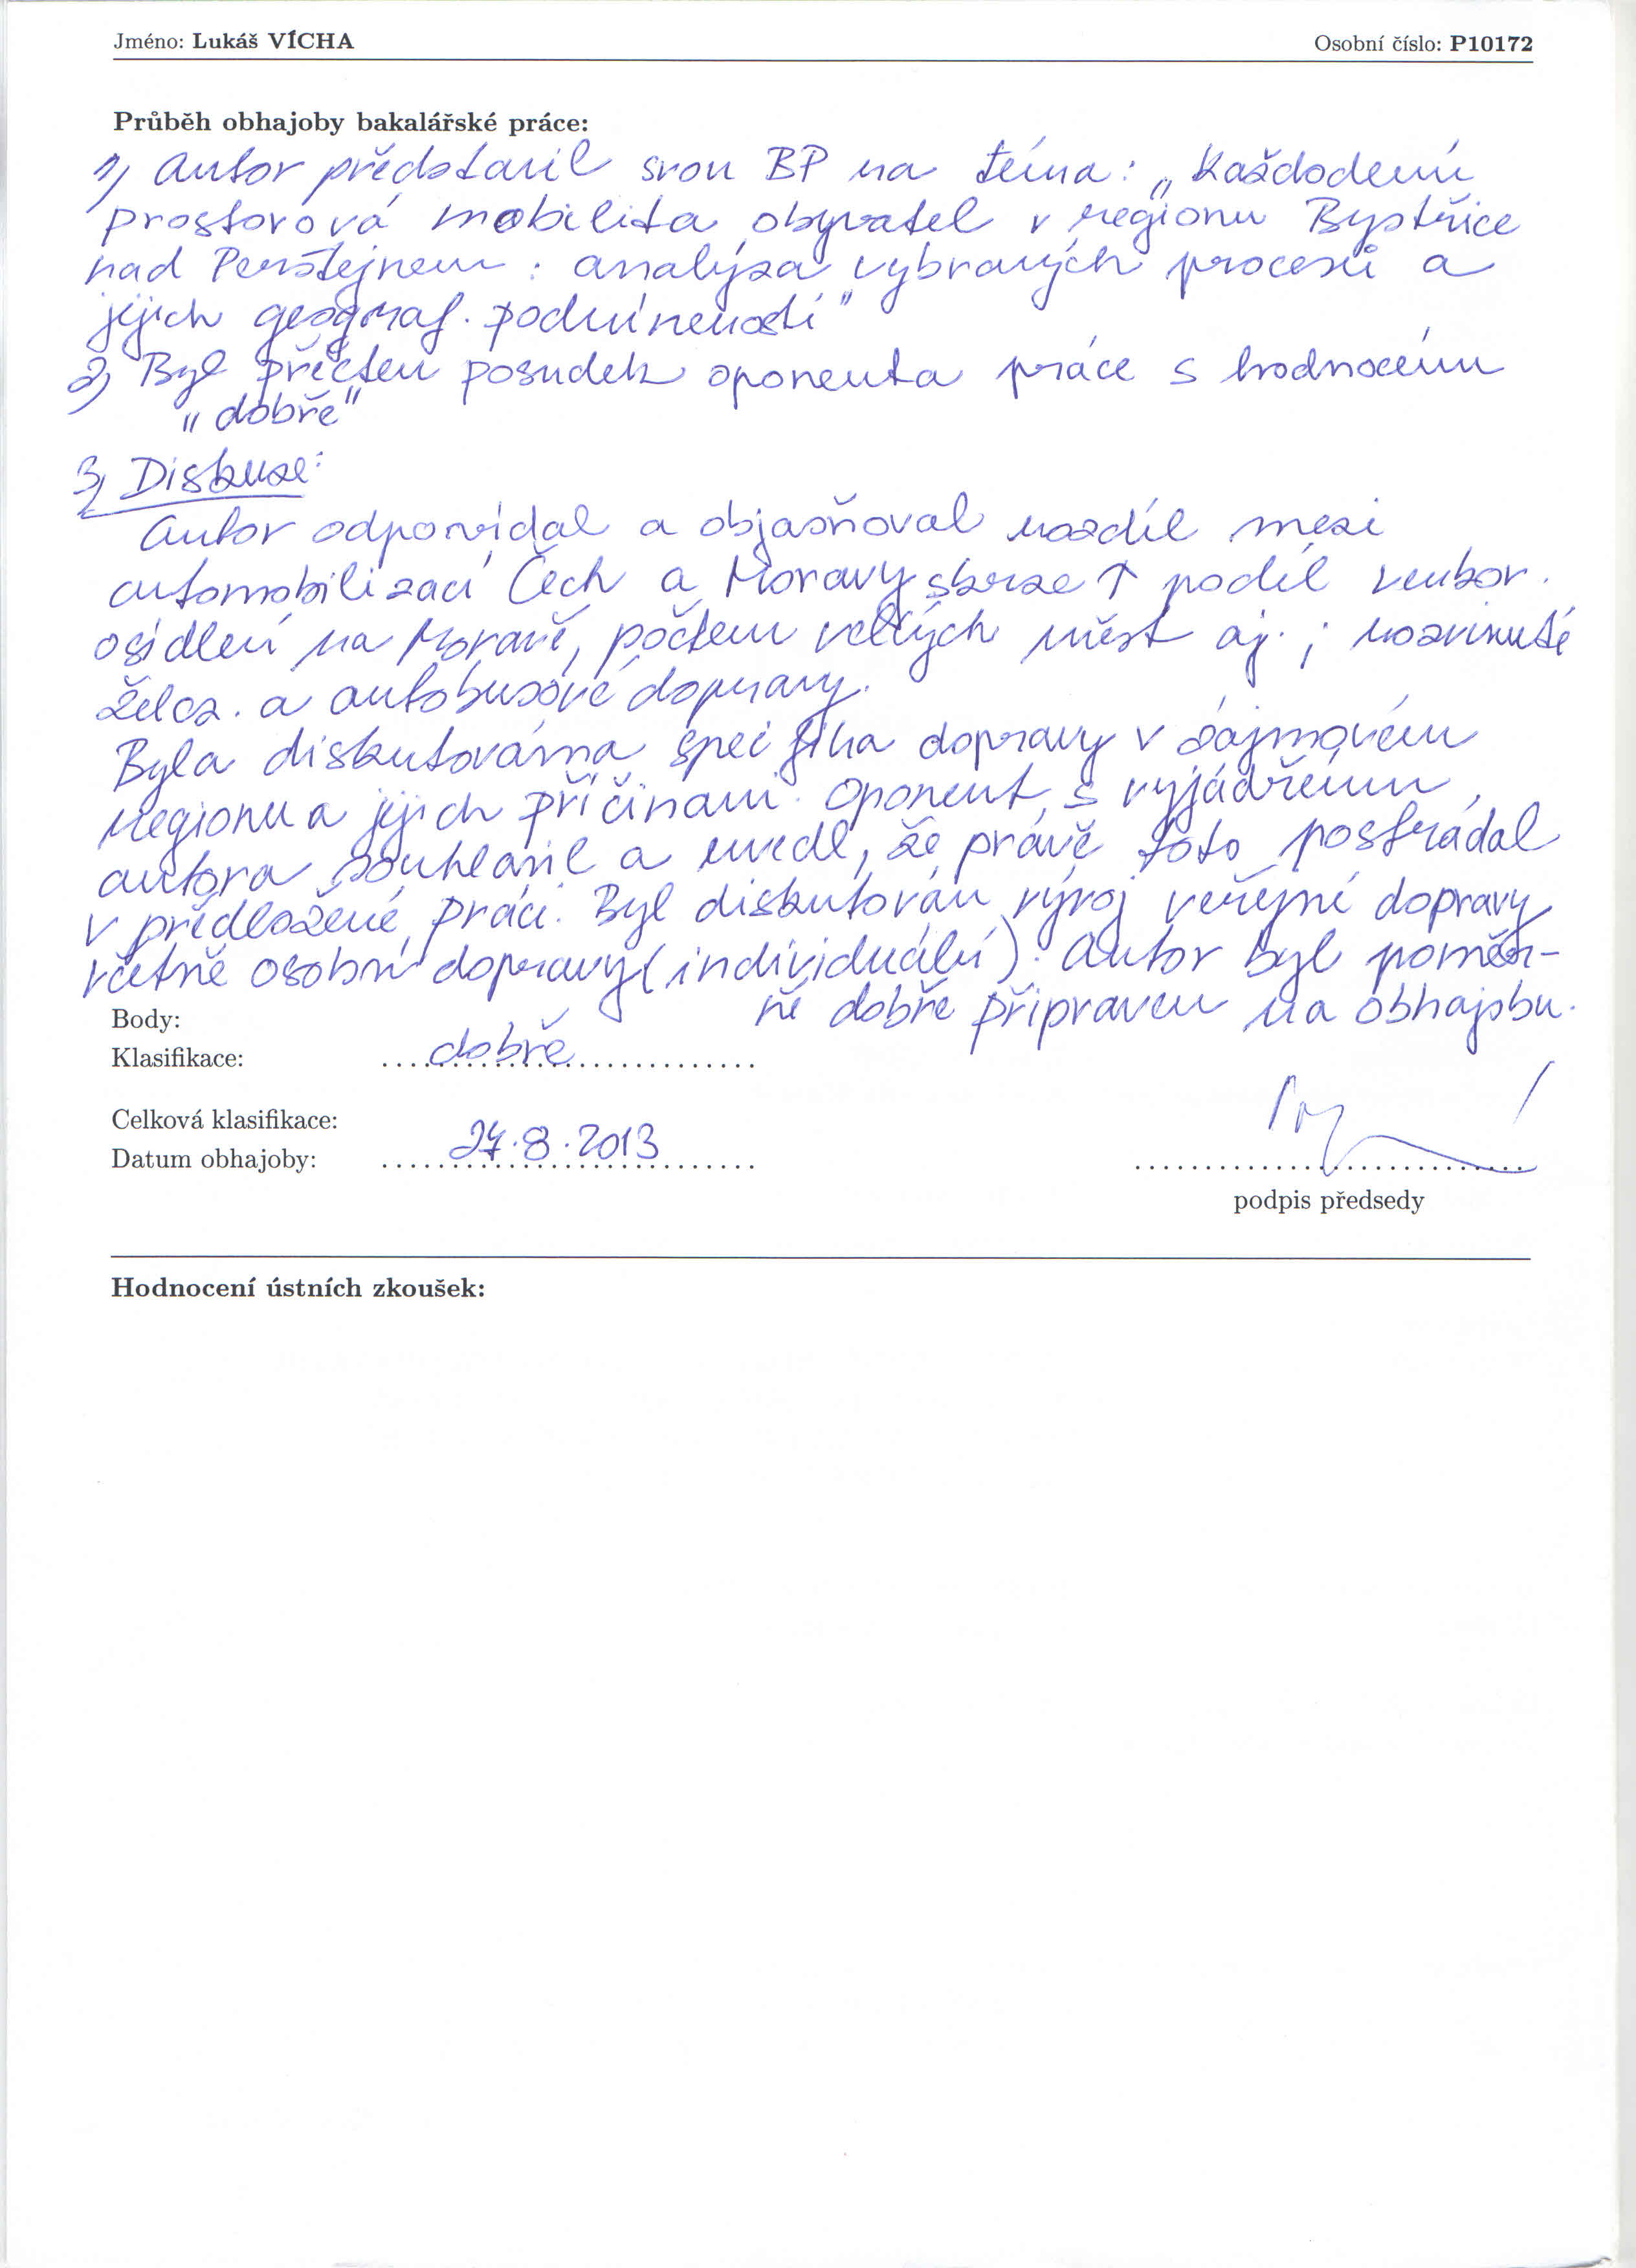 Jméno: Lukáš VÍCHA Osobní číslo: P10172
Průběh obhajoby bakalářské práce:
1) Autor představil svou BP na téma: „Každodenní
prostorová mobilita obyvatel v regionu Bystřice
nad Pernštejnem: analýza vybraných procesů a
jejich geograf. podmíněností"
2) Byl přečten posudek oponenta práce s hodnocením
„dobře"
3) Diskuze:
Autor odpovídal a objasňoval rozdíl mezi
automobilizací Čech a Moravy skrze ↑ podíl venkov.
osídlení na Moravě, počtem velkých měst aj.; rozvinuté
želez. a autobusové dopravy.
Byla diskutována specifika dopravy v zájmovém
regionu a jejich příčinami. Oponent s vyjádřením
autora souhlasil a uvedl, že právě toto postrádal
v předložené práci. Byl diskutován vývoj veřejné dopravy
včetně osobní dopravy (individuální). Autor byl poměr-
ně dobře připraven na obhajobu.
Body:
Klasifikace: dobře
Celková klasifikace:
Datum obhajoby: 27.8.2013
podpis předsedy
Hodnocení ústních zkoušek: